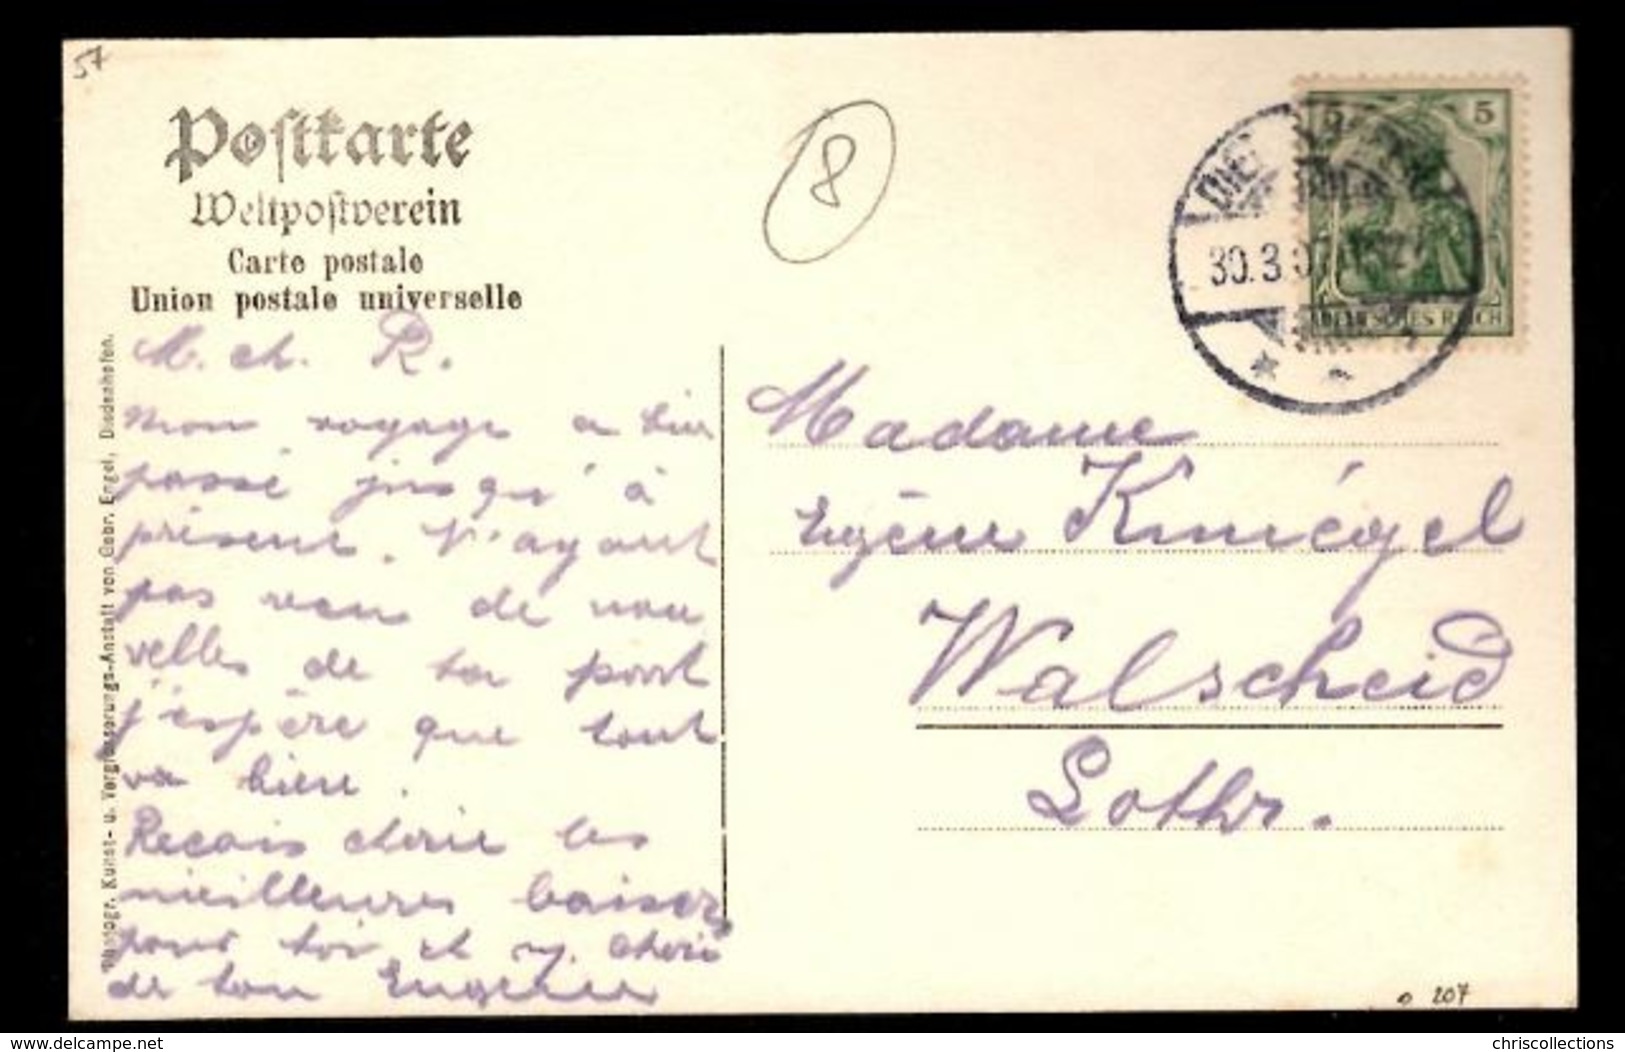 57
Postkarte
Weltpostverein
Carte postale
Union postale universelle
8
5
30.3.
DEUTSCHES REICH
M. ch. R.
Mon voyage a bien
passé jusqu'à
présent. N'ayant
pas reçu de nou
velles de ta part
j'espère que tout
va bien.
Reçois chérie les
meilleures baisers
pour toi et chéri
de ton Eugène
Photogr. Kunst- u. Vergrösserungs-Anstalt von Gebr. Engel, Diedenhofen.
Madame
Eugène Kuniégel
Walscheid
Lothr.
207
www.delcampe.net
chriscollections